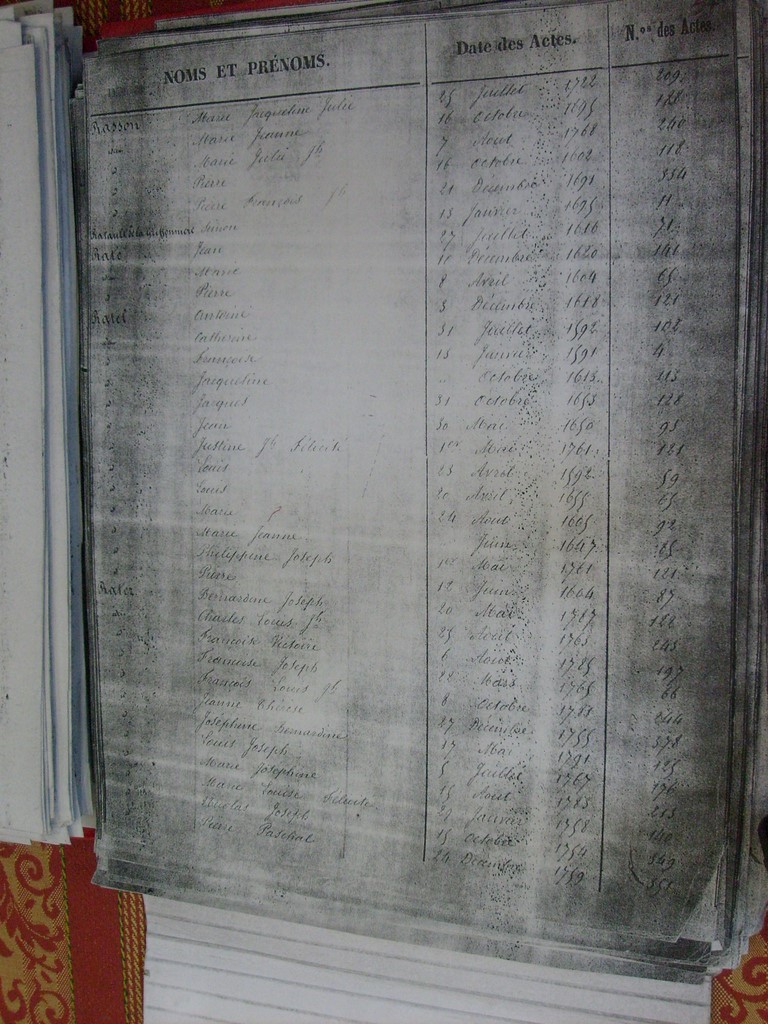 NOMS ET PRÉNOMS. Date des Actes. N.os des Actes.
Rasson Marie Jacqueline Julie 25 Juillet 1722 209
Marie Jeanne 16 Octobre 1695 128
Marie Julie Jh 7 Aout 1768 240
Pierre 16 Octobre 1602 118
Pierre François Jh 21 Decembre 1691 334
Simon 13 Janvier 1695 11
Raté Jean 27 Juillet 1616 71
Marie 10 Décembre 1620 141
Pierre 8 Avril 1604 65
Ratel Antoine 3 Décembre 1618 121
Catherine 31 Juillet 1592 102
Françoise 13 Janvier 1591 4
Jacqueline " Octobre 1613 113
Jacques 31 Octobre 1653 128
Jean 30 Mai 1650 93
Justine Jh Félicité 1er Mai 1761 121
Louis 23 Avril 1592 59
Louis 20 Avril 1655 65
Marie 24 Aout 1605 92
Marie Jeanne Juin 1647 65
Philippine Joseph 1er Mai 1761 121
Pierre 12 Juin 1664 87
Rater Bernardine Joseph 20 Mai 1787 122
Charles Louis Jh 25 Août 1763 245
Françoise Victoire 6 Aout 1785 197
Françoise Joseph 22 Mars 1765 66
François Louis Jh 8 Octobre 1783 244
Jeanne Thérèse 27 Décembre 1755 378
Josephine Bernardine 17 Mai 1791 125
Louis Joseph 5 Juillet 1767 176
Marie Josephine 15 Aout 1783 213
Marie Louise Félicité 21 Janvier 1758
Nicolas Joseph 15 Octobre 1754 349
Pierre Paschal 24 Décembre 1759 355